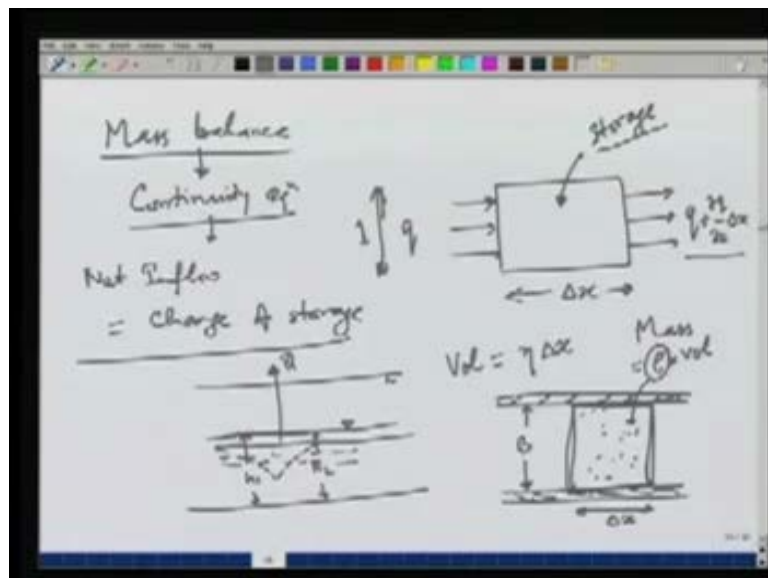 Mass balance
Continuity eqn
Net Inflow
= Change of storage
storage
1
q
q + ∂q/∂x Δx
Δx
Vol = η Δx
Mass
= ρ × Vol
B
Δx
h1